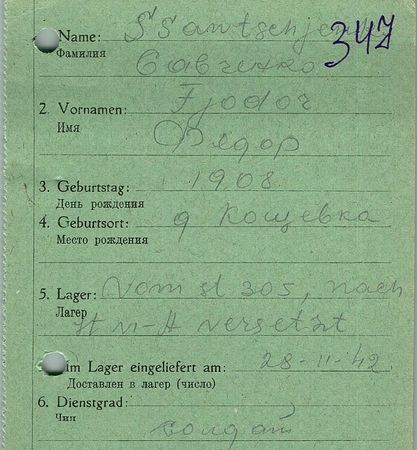 Name: SSawtschjenko 347
Фамилия Савченко
2. Vornamen: Fjodor
Имя Фёдор
3. Geburtstag: 1908
День рождения
4. Geburtsort: д Кощевка
Место рождения
5. Lager: Vom st 305, nach
Лагер
versetzt
im Lager eingeliefert am: 28-11-42
Доставлен в лагер (число)
6. Dienstgrad:
Чин солдат